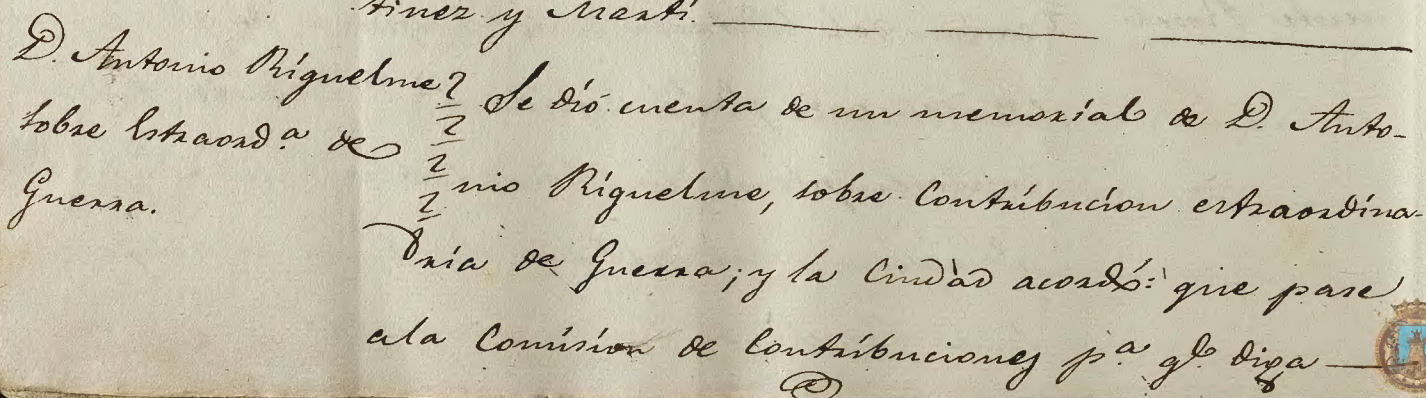 tinez y Martí.
D. Antonio Riguelme
sobre Estraord.ª de
Guerra.
Se dió cuenta de un memorial de D. Anto-
nio Riguelme, sobre Contribucion estraordina-
ria de Guerra; y la Ciudad acordó: que pase
ala Comision de Contribuciones p.ª q.e diga